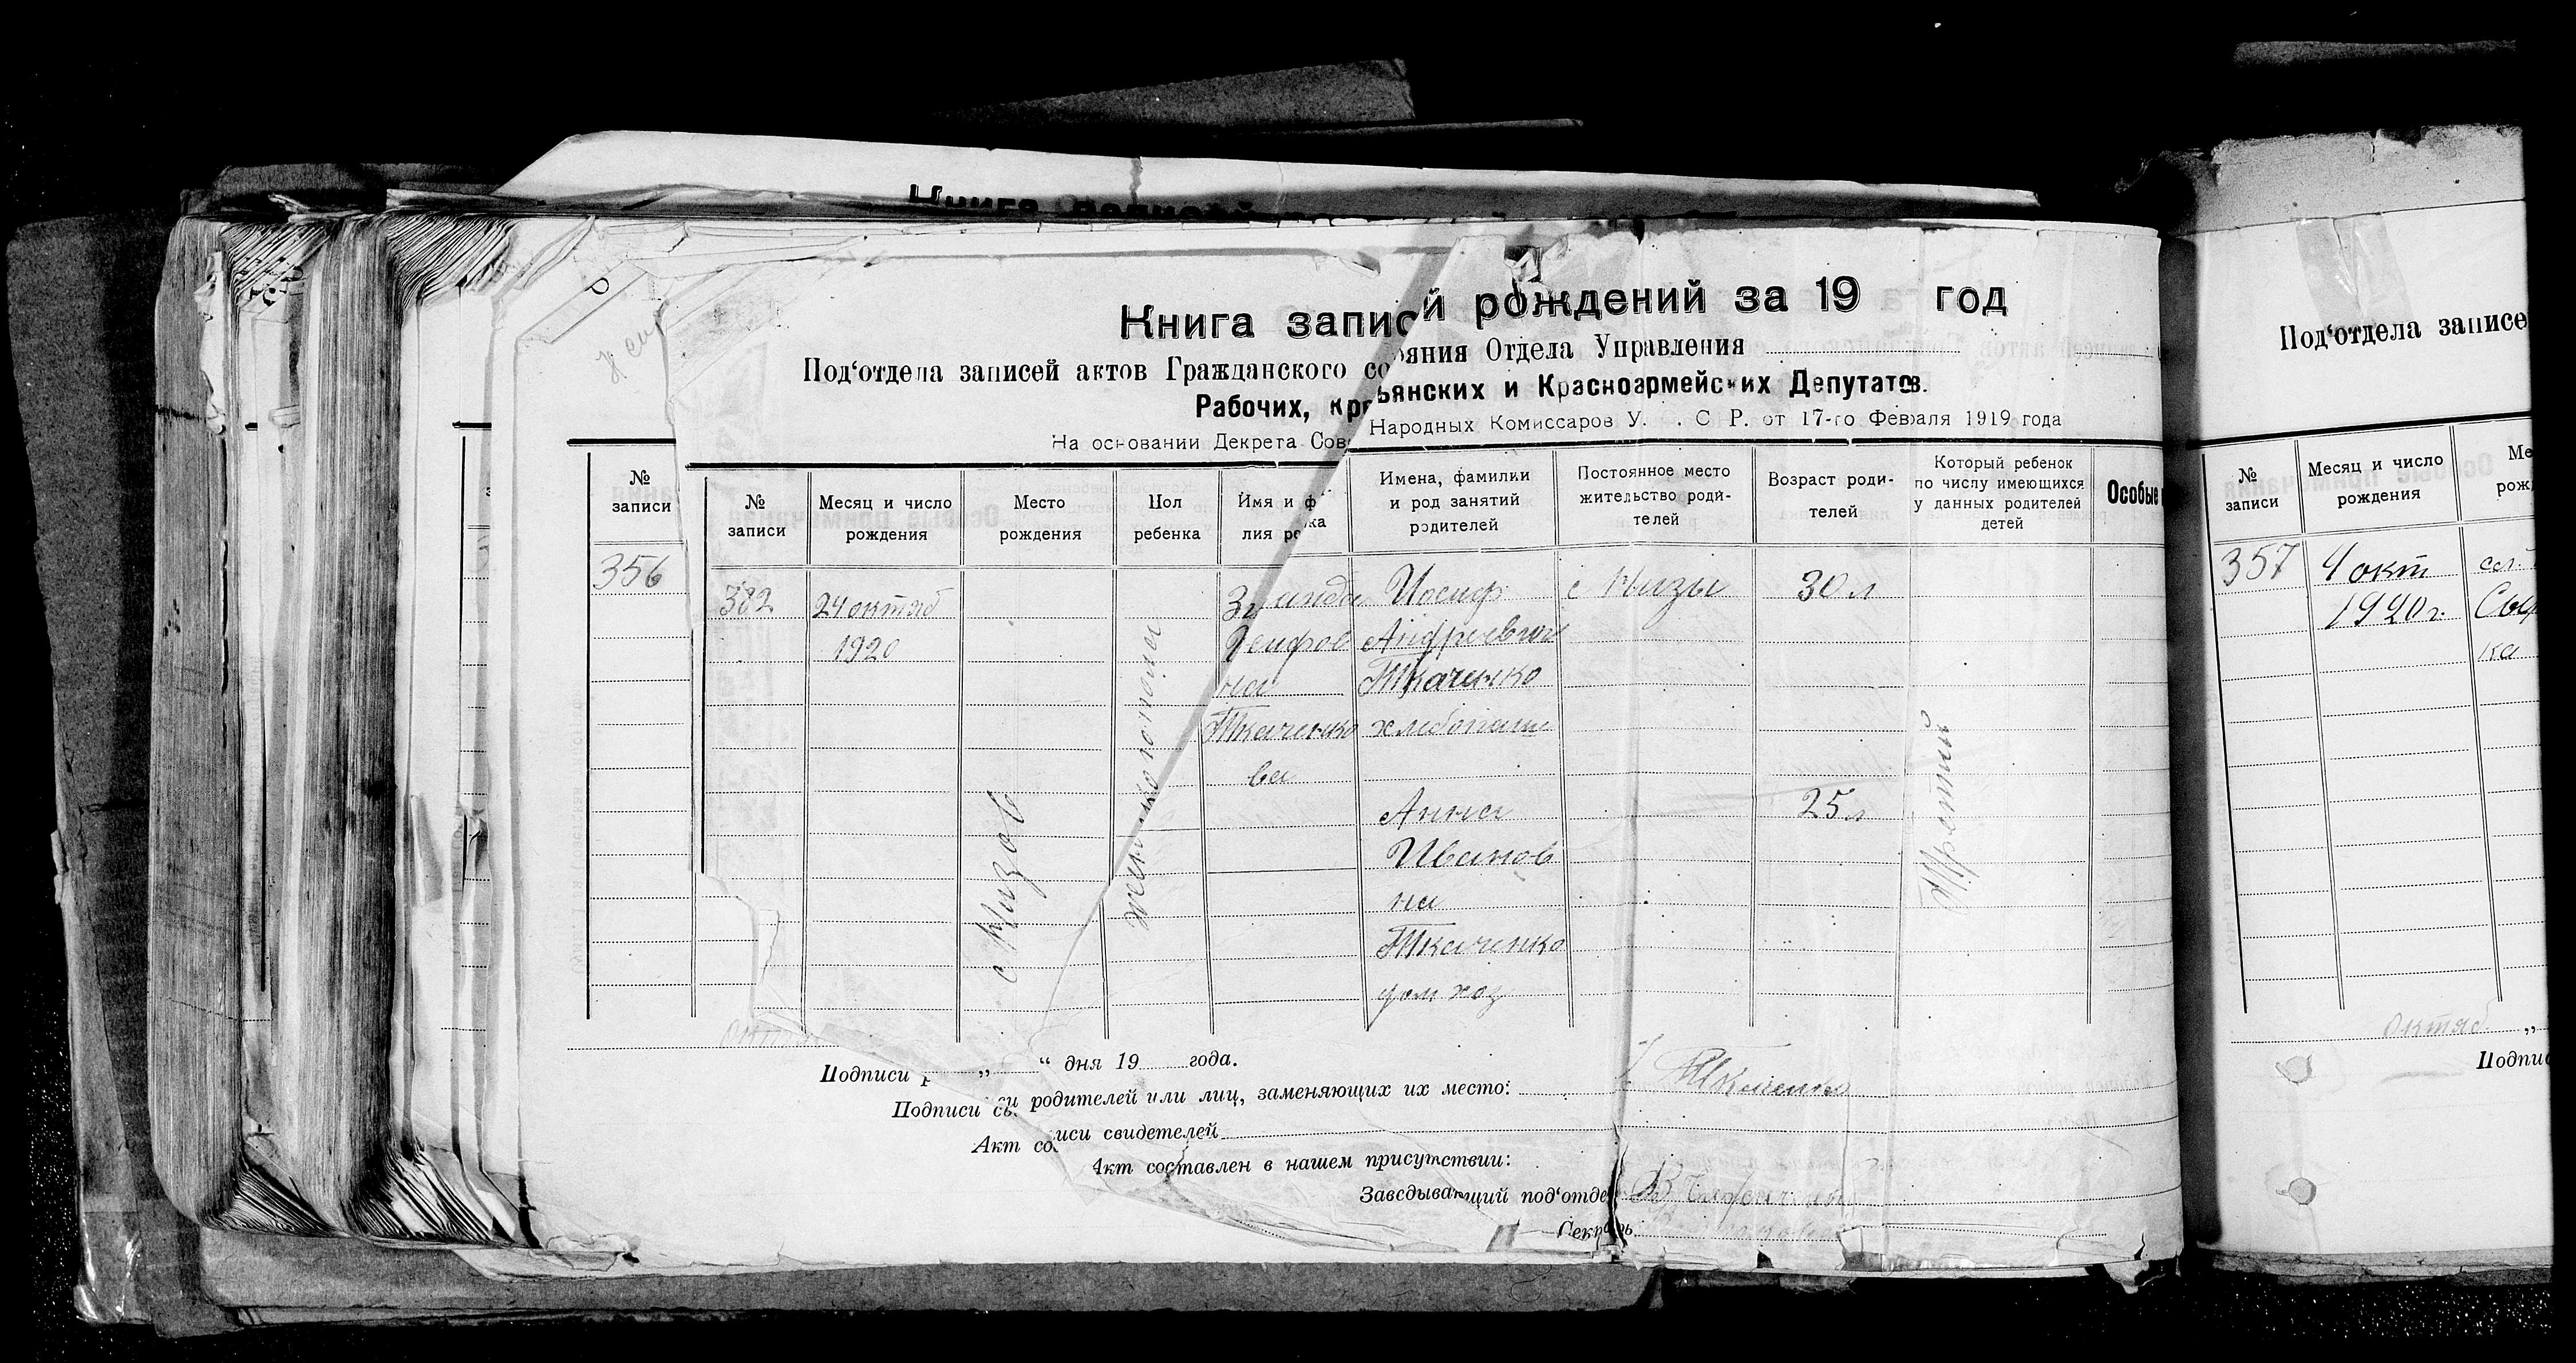 Книга записей рождений за 19 год
Под‘отдела записей актов Гражданского состояния Отдела Управления
Рабочих, Крестьянских и Красноармейских Депутатов.
На основании Декрета Сов Народных Комиссаров У. С Р. от 17-го Февраля 1919 года
№ записи
356
№ записи
Месяц и число рождения
Место рождения
Пол ребенка
Имя и ф лия ре ка
Имена, фамилии и род занятий родителей
Постоянное место жительство родителей
Возраст родителей
Который ребенок по числу имеющихся у данных родителей детей
Особые
382
24 октяб
1920
с Низов
Иосиф
Андреевич
Ткаченко
хлебопаш
Ткаченко
ва
с Низы
30 л
Анна
Иванов
на
Ткаченко
дом хоз
25 л
Третий
“ дня 19 года.
Подписи родителей или лиц, заменяющих их место:
Ткаченко
Подписи св
иси свидетелей
Акт сос
Акт составлен в нашем присутствии:
Заведывающий под‘отде
Секр рь
Под‘отдела записе
№ записи
Месяц и число рождения
Ме
рож
357
4 окт
1920 г.
сел.
ка
октяб. „
Подпи